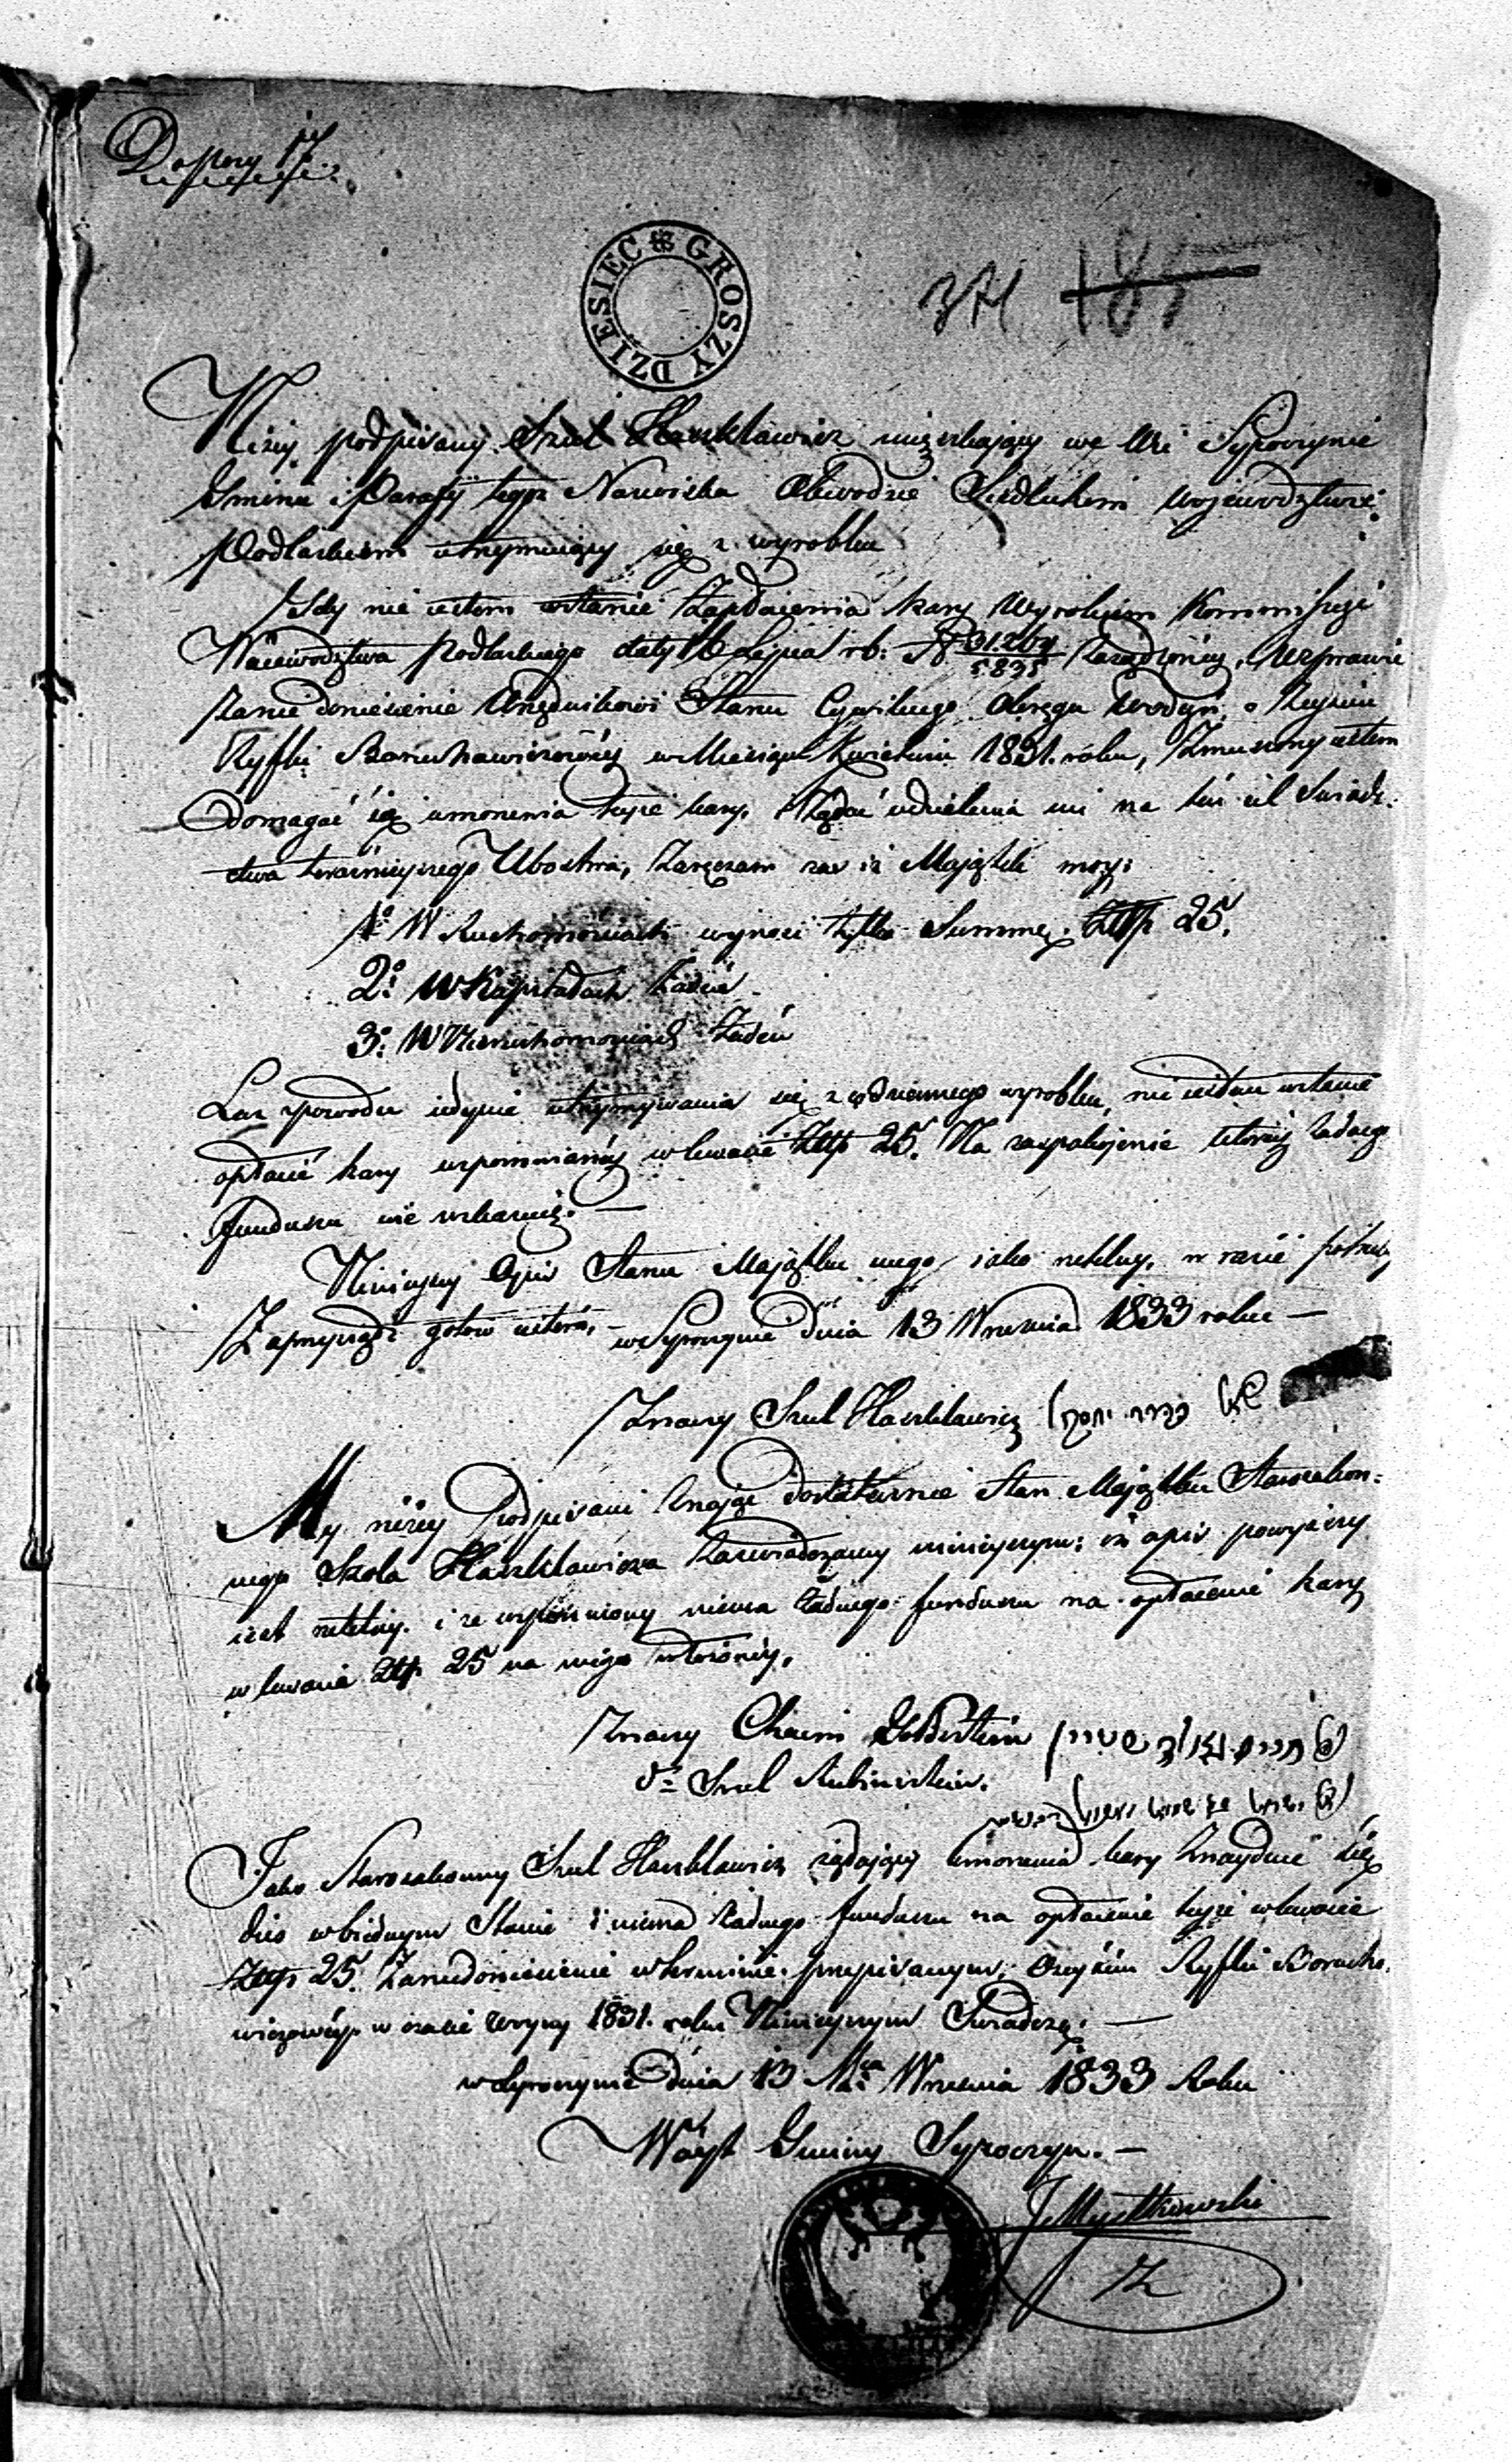 DZIESIĘC GROSZY
371 185
Niżey podpisany Szul Haszklawicz mięszkaiący we Wsi Syroczynie
Gminie i Parafij tegoż Nazwiska Obwodzie Siedleckim Województwie
Podlaskiem utrzymuiący się z wyrobku
Gdy nie iestem wstanie Zapłacenia kary Wyrokiem Kommissyi
Woiewództwa Podlaskiego daty Lipca rb: N
5835
Urzędnikowi Stanu Cywilnego Okręgu Wodyń o Zeyściu
Ryfki w Miesiącu Kwietniu 1831. roku, Zmuszony iestem
Domagać się umorzenia teyże kary, i Żądać udzielenia mi na ten cel Świade-
ctwa Ubostwa, Zaręczam zaś iż Maiątek moy:
1o W Ruchomościach wynosi tylko Summę. Złtp 25.
2o: W Kapitałach Żaden
3o: W Nieruchomościach Żaden
Zaś spowodu iedynie utrzymywania się z codziennego wyrobku, nie iestem wstanie
opłacić kary wspomnianéy w kwocie Złtp 25. Na zaspokojenie któréy żadnego
funduszu nie wskazuię. —
Ninieyszy Opis Stanu Maiątku mego iako rzetelny, w razie potrzeby
Zaprzysiądz gotow iestem, — w Syroczynie dnia 13 Września 1833 roku —
Znaczy Szul Haszklawicz
My niżéy Podpisani Znaiąc dostatecznie Stan Maiątku Starozakon-
nego Szola Haszklawicza Zaswiadczamy ninieyszym; iż opis powyższy
iest rzetelny. i że wspomniony niema żadnego funduszu na opłacenie kary
w kwocie Złtp 25 na niego włożonéy,
Znaczy Chaim Goldsztein
do Srul Rubinsztein.
Jako Starozakonny Szul Haszklawicz żądaiący Umorzenia kary Znayduie się
dziś w biednym Stanie i niema żadnego funduszu na opłacenie teyże w kwocie
Złtp 25. Zaniedoniesienie w terminie przepisanym, Ozeyściu Ryfki Borucho-
wiczowéy. w czasie Woyny 1831. roku Ninieyszym Świadczę. —
w Syroczynie dnia 13 Mca Września 1833 Roku
Wóyt Gminy Syroczyn. —
J Mystkowski